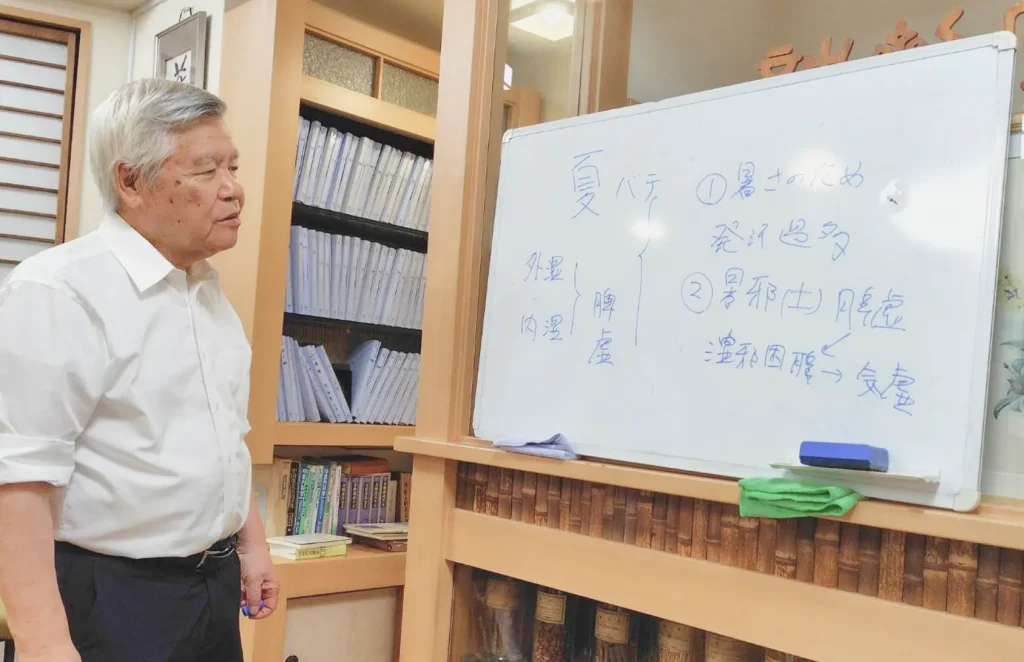 夏バテ
外湿
内湿
脾虚
①暑さのため
発汗過多
②暑邪(士)脾虚
湿邪困脾→気虚